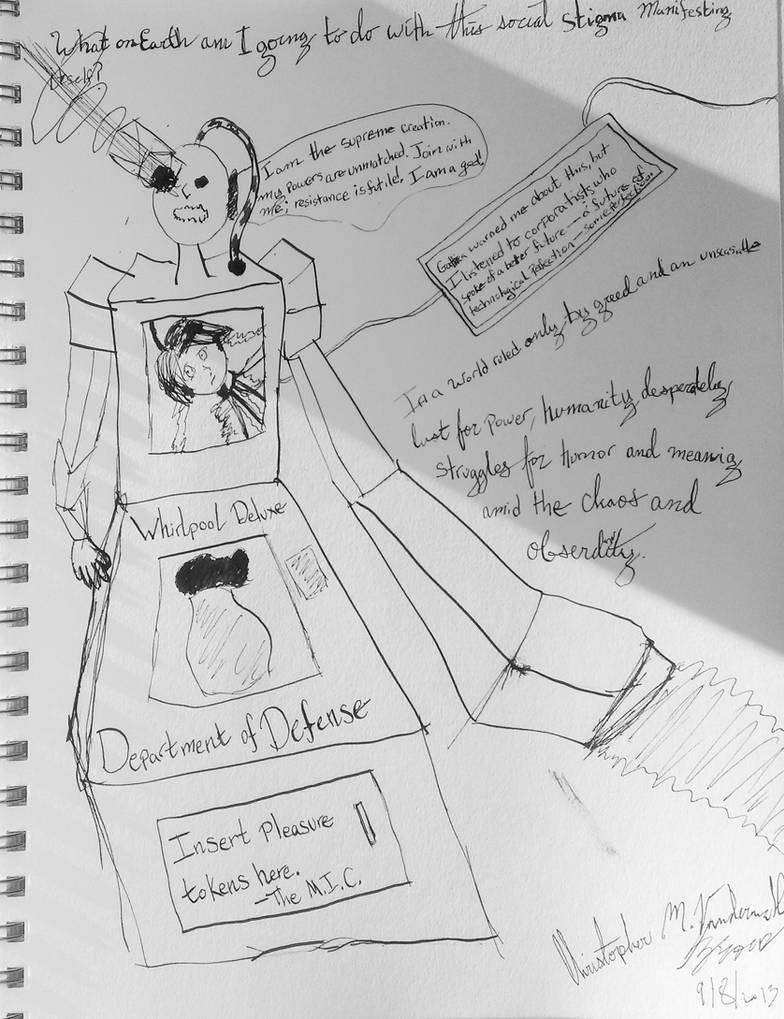 What on Earth am I going to do with this social stigma manifesting
itself?
I am the supreme creation.
my powers are unmatched. Join with
me; resistance is futile! I am a god!
Gattaca warned me about this, but
I listened to corporatists who
spoke of a better future — a future of
technological perfection — some perfection
In a world ruled only by greed and an unseasable
lust for power, humanity desperately
struggles for humor and meaning
amid the chaos and
obserdity.
Whirlpool Deluxe
Department of Defense
Insert Pleasure
tokens here.
-The M.I.C.
Christopher M.
9/8/2013